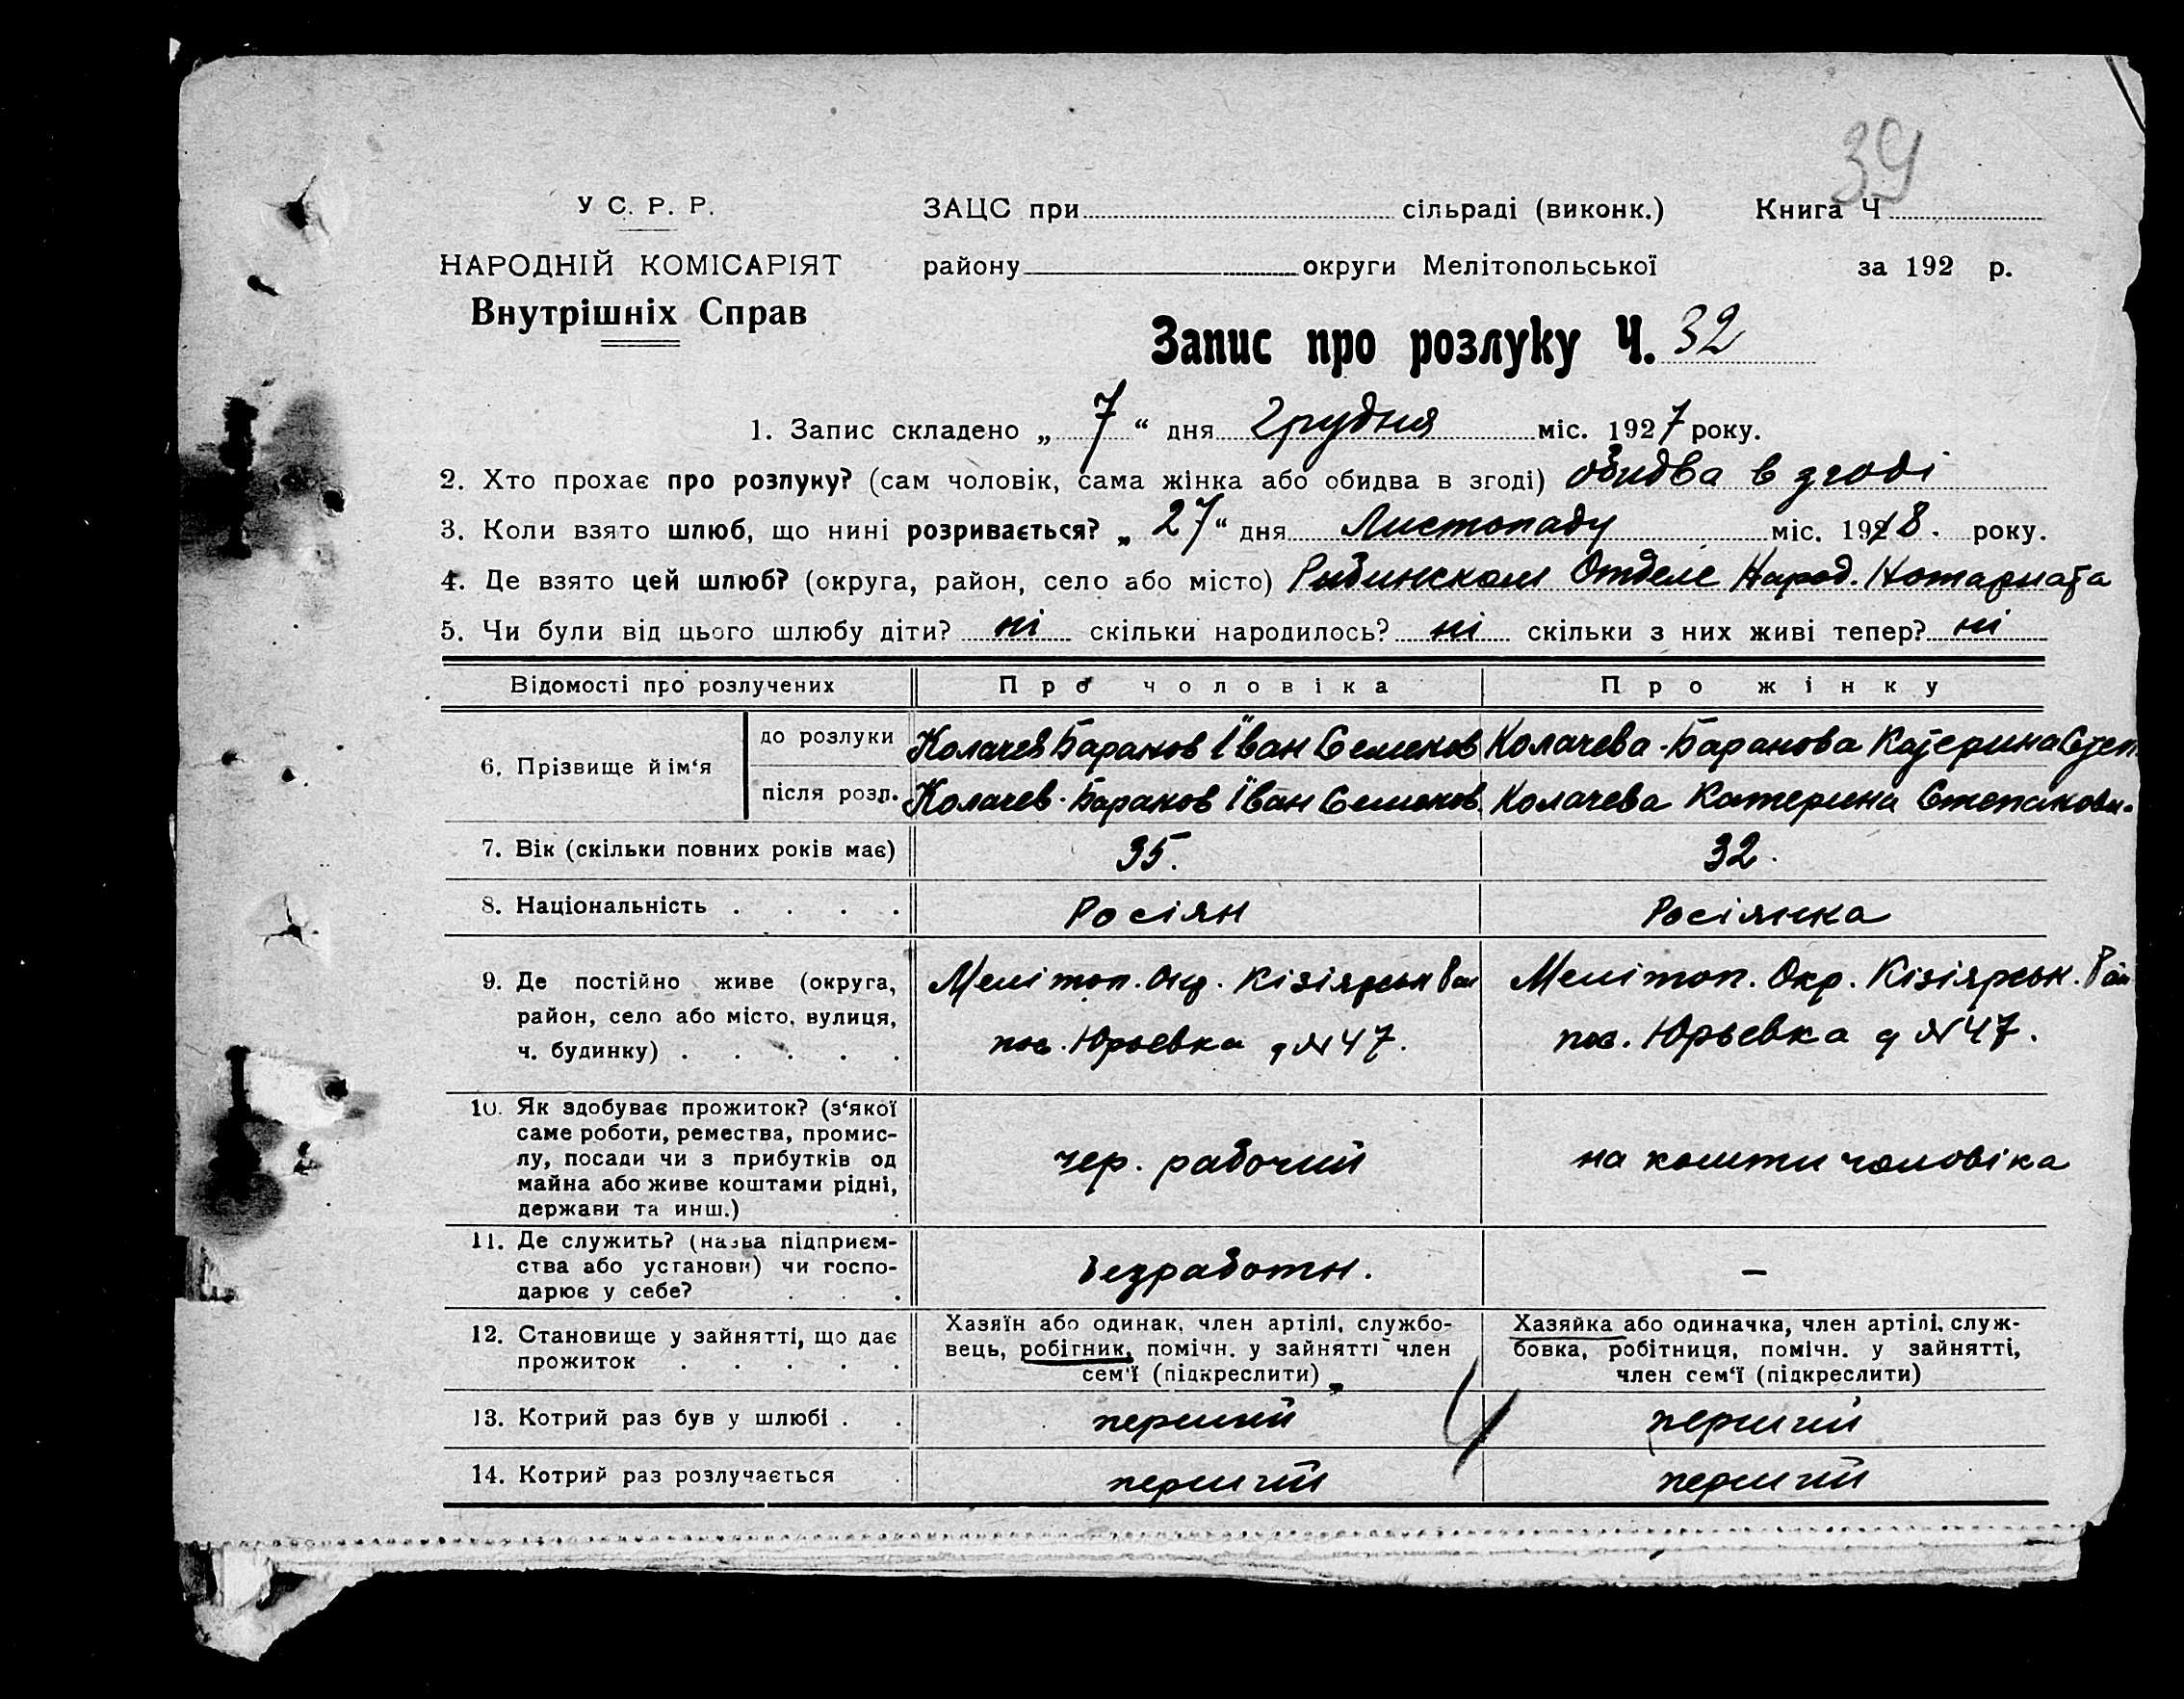 39
У С. Р. Р.
НАРОДНІЙ КОМІСАРІЯТ
Внутрішніх Справ
ЗАЦС при сільраді (виконк.) Книга Ч
району округи Мелітопольської за 192 р.
Запис про розлуку Ч. 32
1. Запис складено „ 7 “ дня Грудня міс. 1927 року.
2. Хто прохає про розлуку? (сам чоловік, сама жінка або обидва в згоді) обидва в згоді
3. Коли взято шлюб, що нині розривається? „ 27 “ дня Листопаду міс. 1918. року.
4. Де взято цей шлюб? (округа, район, село або місто) Рибинском Отделе Народ. Нотариата
5. Чи були від цього шлюбу діти? ні скільки народилось? ні скільки з них живі тепер? ні
Відомості про розлучених Про чоловіка Про жінку
6. Прізвище й ім‘я
до розлуки Колачев Баранов Іван Семенов Колачева-Баранова Катерина Степ.
після розл. Колачев-Баранов Іван Семенов. Колачева Катерина Степановн.
7. Вік (скільки повних років має) 35. 32.
8. Національність . . . . Росіян Росіянка
9. Де постійно живе (округа, район, село або місто, вулиця, ч. будинку) . . . . .
Мелітоп. Окр. Кізіярськ Рай
пос. Юрьевка д №47.
Мелітоп. Окр. Кізіярськ. Рай
пос. Юрьевка д №47.
10. Як здобуває прожиток? (з‘якої
саме роботи, ремества, промис-
лу, посади чи з прибутків од
майна або живе коштами рідні,
держави та инш.)
чер. рабочий на кошти чоловіка
11. Де служить? (назва підприєм-
ства або установи) чи госпо-
дарює у себе? . . .
безработн. –
12. Становище у зайнятті, що дає
прожиток . . . . .
Хазяїн або одинак, член артілі, службо-
вець, робітник, помічн. у зайнятті член
сем‘ї (підкреслити)
Хазяйка або одиначка, член артілі, служ-
бовка, робітниця, помічн. у зайнятті,
член сем‘ї (підкреслити)
13. Котрий раз був у шлюбі . . перший перший
14. Котрий раз розлучається . перший перший